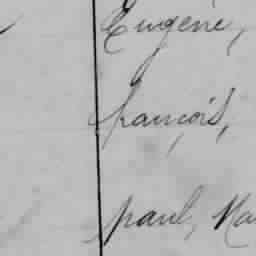 Eugène,
françois,
paul, Ma